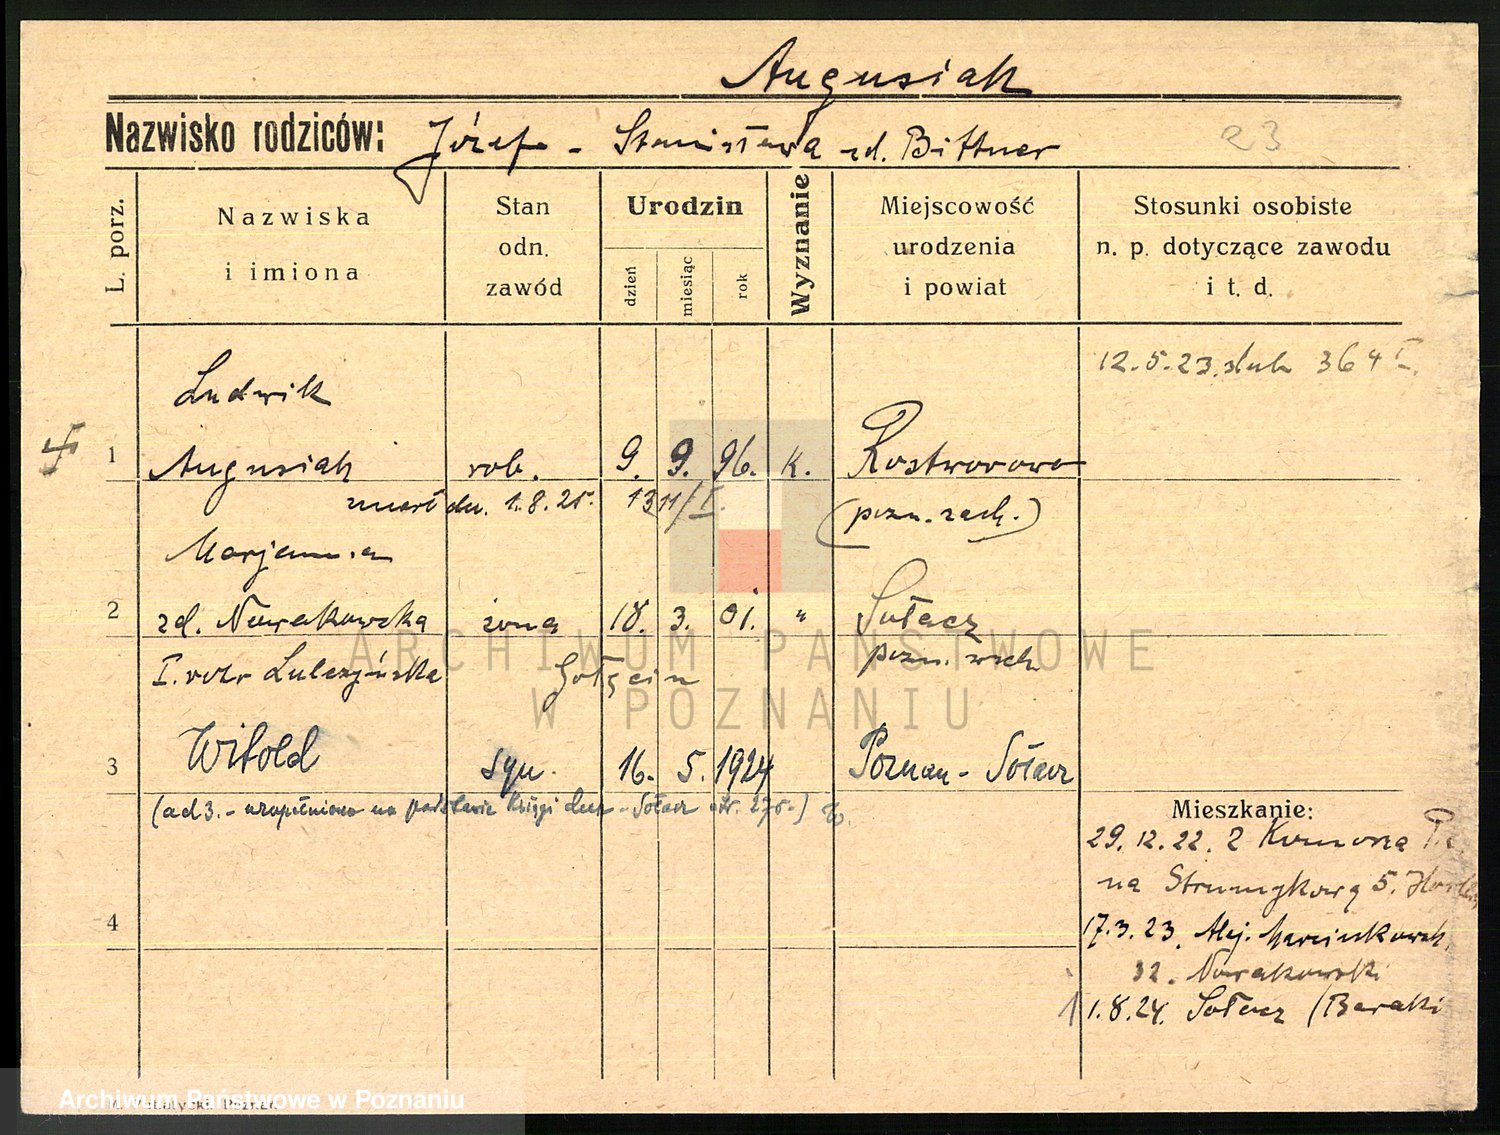 Augusiak
Nazwisko rodziców: Józef - Stanisława zd. Bittner
23
L. porz.
Nazwiska
i imiona
Stan
odn.
zawód
Urodzin
dzień
miesiąc
rok
Wyznanie
Miejscowość
urodzenia
i powiat
Stosunki osobiste
n. p. dotyczące zawodu
i t. d.
12.5.23. ślub 364 I.
Ludwik
1 Augusiak rob. 9. 9. 96. k. Rostworowo
zmarł dn. 1.8.25. 1311/I. (pozn. zach.)
Marjanna
2 zd. Nowakowska żona 18. 3. 01. " Sołacz
I. voto Lulczyńska Gołęcin pozn. wsch
Witold
3 syn. 16. 5. 1924 Poznań - Sołacz
(ad 3. - uzupełniono na podstawie Księgi - Sołacz str. 275.)
Mieszkanie:
29.12.22. z Komorza
na Strumykową 5.
4
17.3.23. Alej. Marcinkowsk.
32. Nowakowski
1.8.24. Sołacz (Baraki
ARCHIWUM PAŃSTWOWE
W POZNANIU
Archiwum Państwowe w Poznaniu